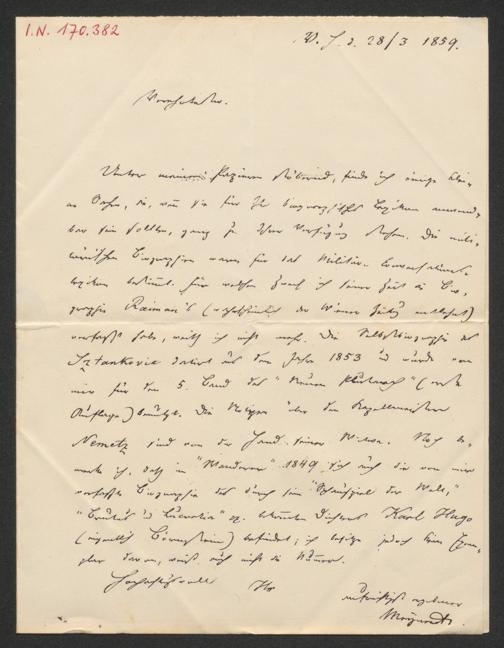 I.N. 170.382
W. J. d. 28/3 1859.
Verehrtester.
Unter meinen Papieren stöbernd, finde ich einige klei-
ne Sachen, die, wenn Sie für Ihr biographisches Lexikon verwend-
bar sein sollten, ganz zu Ihrer Verfügung stehen. Die mili-
tärischen Biographien waren für das Militär-Conversations-
lexikon bestimmt. Für welchen Zweck ich seiner Zeit die Bio-
graphie Raiman's ( der Wiener Zeitg entlehnt)
verfaßt habe, weiß ich nicht mehr. Die Selbstbiographie des
Sztankovic datirt aus dem Jahre 1853 und wurde von
mir für den 5. Band des "Neuen Plutarch" (
Auflage) benützt. Die Notizen über den Kapellmeister
Nemetz sind von der Hand seiner Witwe. Noch be-
merke ich, daß im "Wanderer" 1849 sich auch die von mir
verfaßte Biographie des durch sein "Schauspiel der Welt,"
"Brutus und Lucretia" bekannten Dichters Karl Hugo
(eigentlich Bernstein) befindet; ich besitze jedoch kein Exem-
plar davon, weiß auch nicht die Numer.
Hochachtungsvoll
Ihr
aufrichtigst ergebener